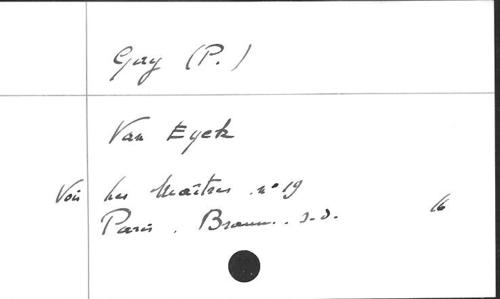 Gay (P.)
Van Eyck
Voir Les Maîtres n° 19
Paris. Braun. s.d. 16